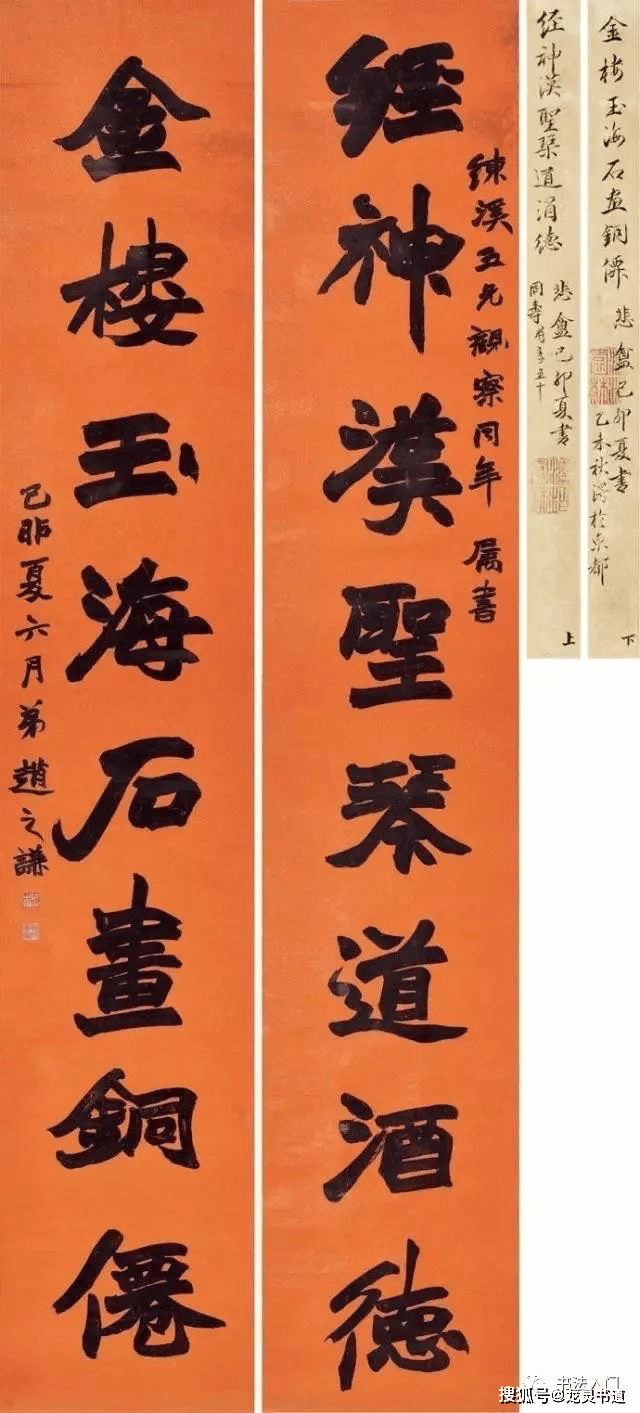 練溪五兄觀察同年 屬書
經神漢聖琴道酒德
金樓玉海石畫銅僊
己卯夏六月弟趙之謙
經神漢聖琴道酒德 悲盦己卯夏書
五十
上
金樓玉海石畫銅僊 悲盦己卯夏書
乙未秋得於京都
下
书法入门
搜狐号@龙灵书道